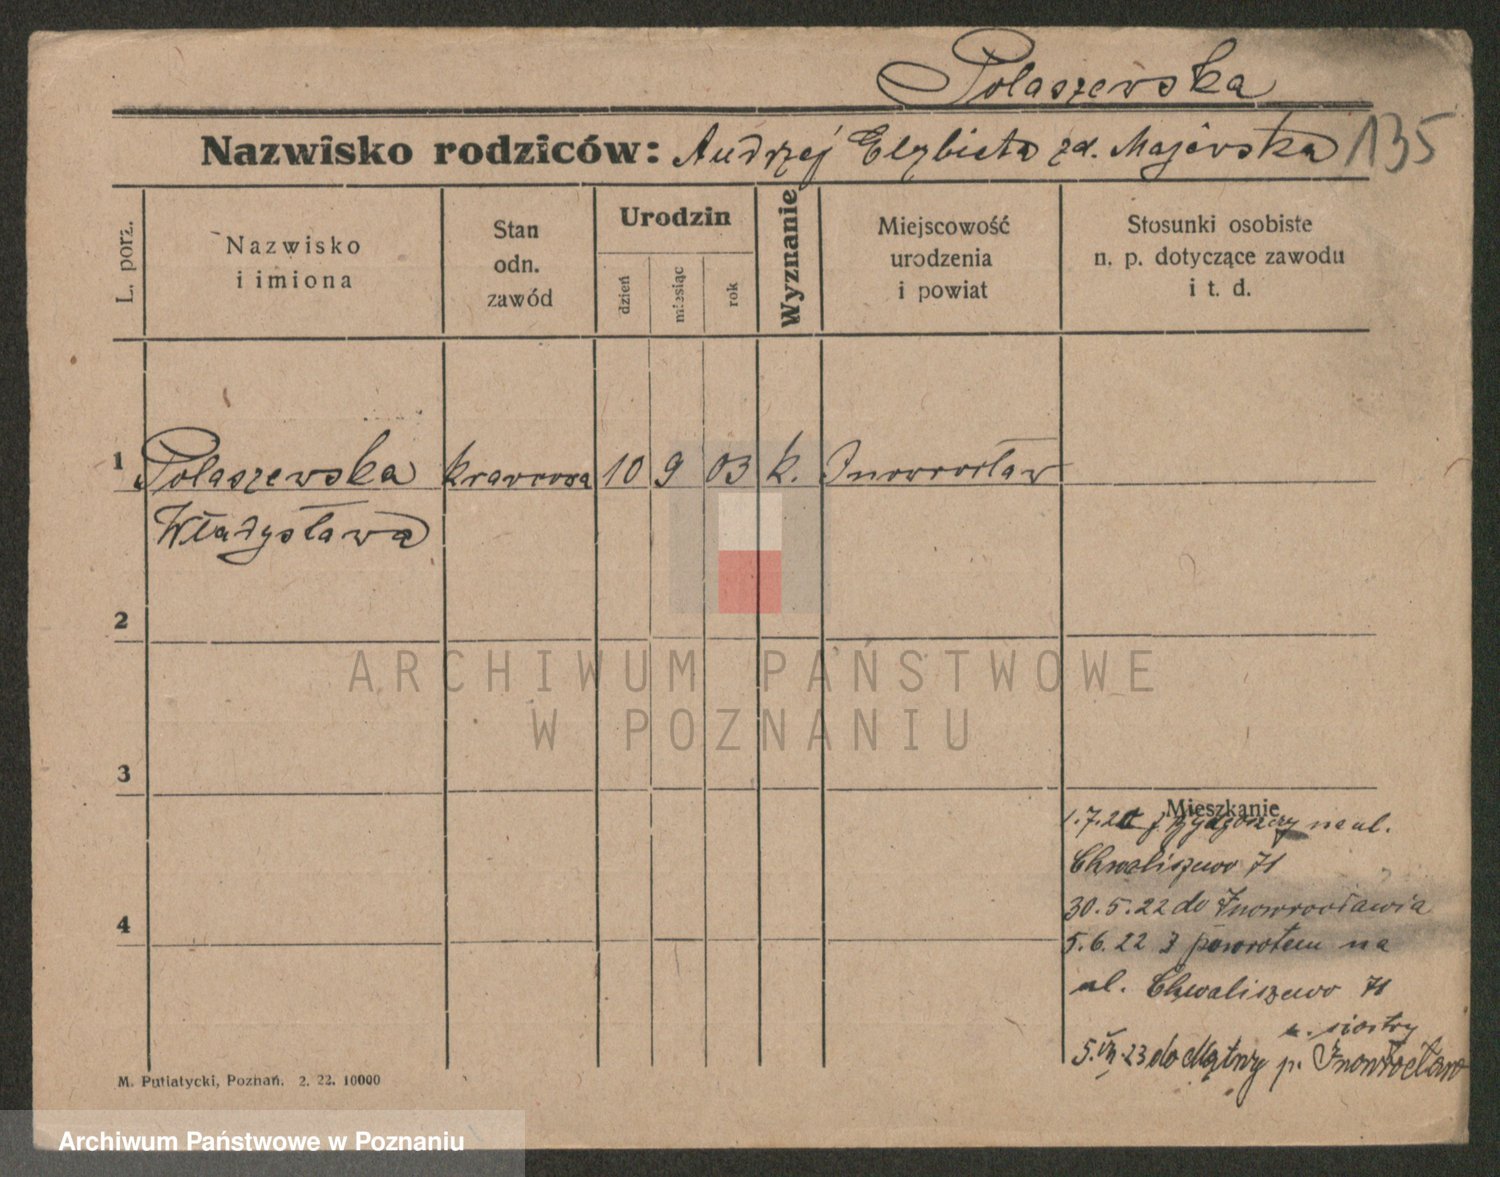 Polaszewska
Nazwisko rodziców: Andrzej Elzbieta zd. Majewska 135
L. porz.
Nazwisko
i imiona
Stan
odn.
zawód
Urodzin
dzień
miesiąc
rok
Wyznanie
Miejscowość
urodzenia
i powiat
Stosunki osobiste
n. p. dotyczące zawodu
i t. d.
1 Polaszewska krawcowa 10 9 03 k. Inowrocław
Władysława
2
ARCHIWUM PAŃSTWOWE
W POZNANIU
3
Mieszkanie
1.7.21 z Bydgoszczy na ul.
Chwaliszewo 71
30.5.22 do Inowrocławia
4
5.6.22 z powrotem na
ul. Chwaliszewo 71
u. siostry
5. 23 do Mątwy p. Inowrocław
M. Putiatycki, Poznań. 2. 22. 10000
Archiwum Państwowe w Poznaniu